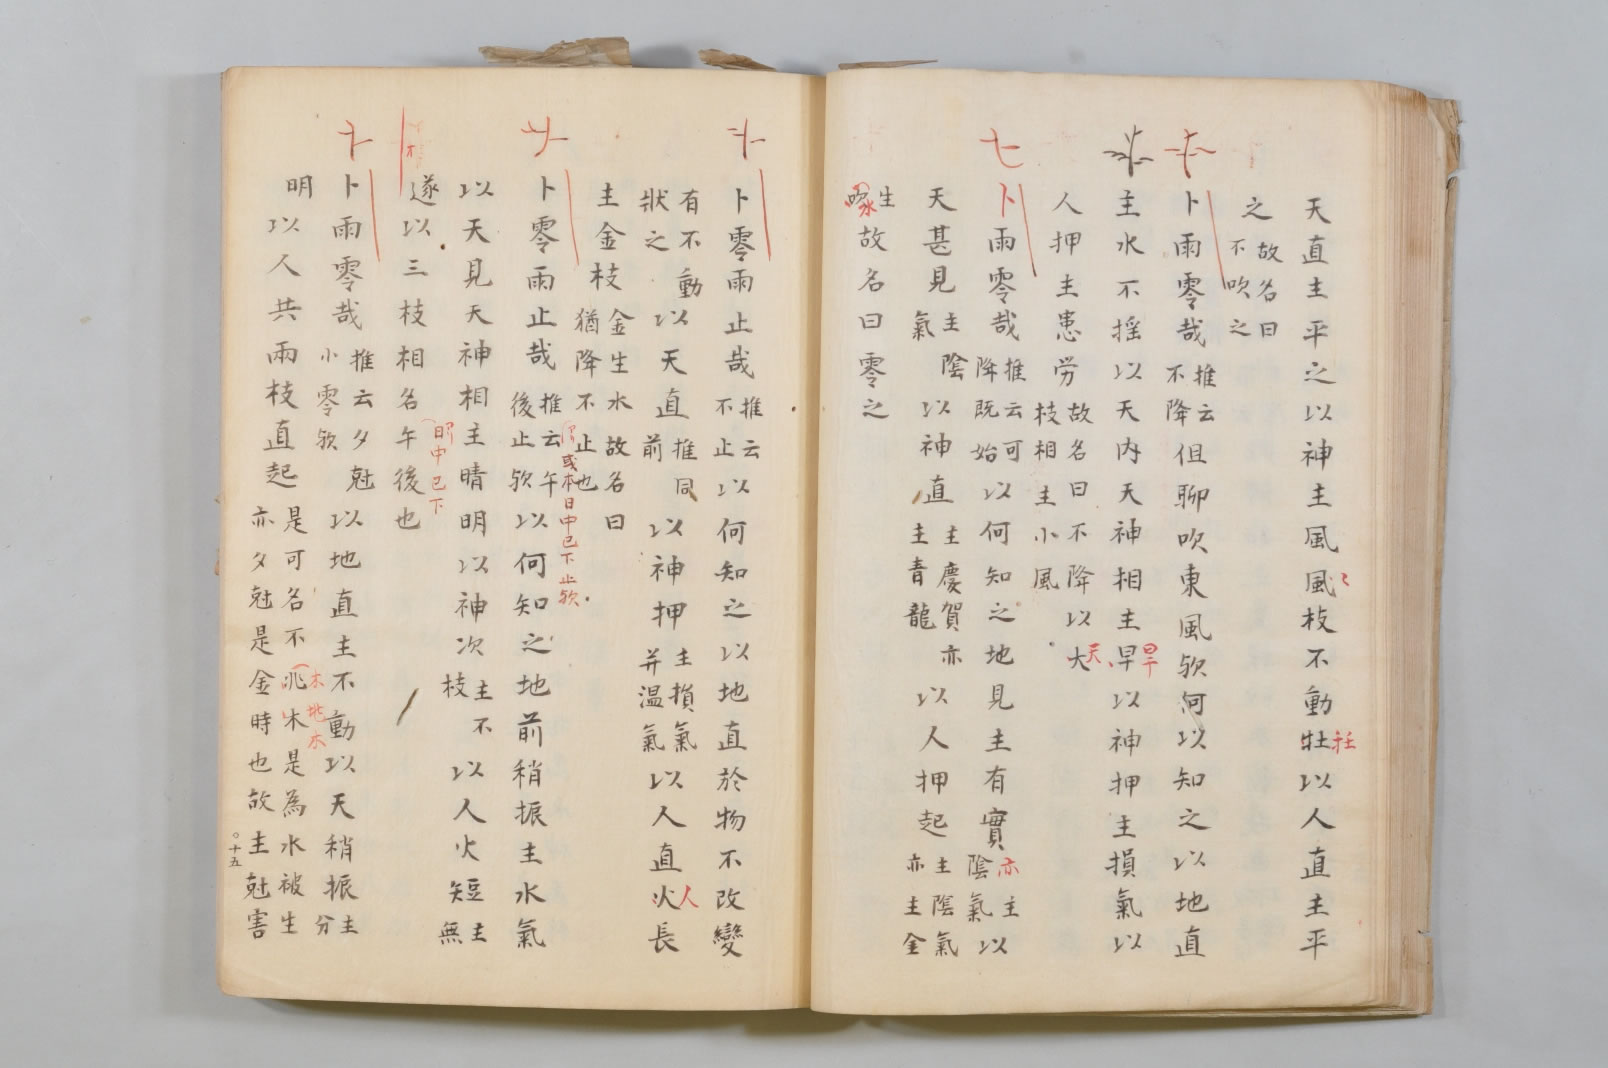 天直主平之以神主風風枝不動牡以人直主平
之故名曰不吹之
卜雨零哉推云不降但聊吹東風歟何以知之以地直
主水不揺以天内天神相主早以神押主損氣以
人押主患労故名曰不降枝相主小風以大
卜雨零哉推云可降既始以何知之地見主有實亦主陰氣以
天甚見主陰氣以神直主慶賀亦主青龍以人押起主陰氣亦主金
生故名曰零之
卜零雨止哉推云不止以何知之以地直於物不改變
有不動狀之以天直前推同以神押主損氣并温氣以人直火長
主金枝金生水故名曰猶降不止也
卜零雨止哉推云午後止歟以何知之地前稍振主水氣
謂或本日中已下止歟
以天見天神相主晴明以神次枝主不以人火短主無
遂以三枝相名午後也
日中已下
卜雨零哉推云夕尅小零歟以地直主不動以天稍振主分
明以人共兩枝直起是可名不兆木是為水被生亦夕尅是金時也故主尅害
十五